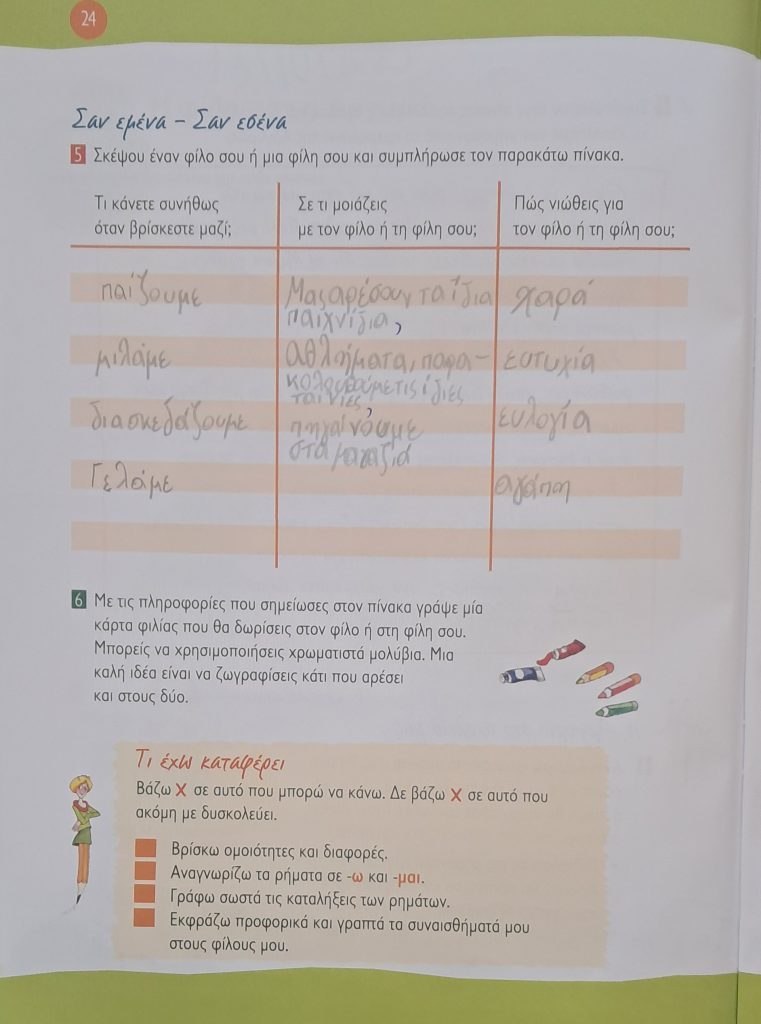 24
Σαν εμένα – Σαν εσένα
5 Σκέψου έναν φίλο σου ή μια φίλη σου και συμπλήρωσε τον παρακάτω πίνακα.
Τι κάνετε συνήθως
όταν βρίσκεστε μαζί;
Σε τι μοιάζεις
με τον φίλο ή τη φίλη σου;
Πώς νιώθεις για
τον φίλο ή τη φίλη σου;
παίζουμε
μιλάμε
διασκεδάζουμε
Γελάμε
Μας αρέσουν τα ίδια
παιχνίδια,
αθλήματα, παρα-
κολουθούμε τις ίδιες
ταινίες,
πηγαίνουμε
στα μαγαζιά
χαρά
ευτυχία
ευλογία
αγάπη
6 Με τις πληροφορίες που σημείωσες στον πίνακα γράψε μία
κάρτα φιλίας που θα δωρίσεις στον φίλο ή στη φίλη σου.
Μπορείς να χρησιμοποιήσεις χρωματιστά μολύβια. Μια
καλή ιδέα είναι να ζωγραφίσεις κάτι που αρέσει
και στους δύο.
Τι έχω καταφέρει
Βάζω X σε αυτό που μπορώ να κάνω. Δε βάζω X σε αυτό που
ακόμη με δυσκολεύει.
Βρίσκω ομοιότητες και διαφορές.
Αναγνωρίζω τα ρήματα σε -ω και -μαι.
Γράφω σωστά τις καταλήξεις των ρημάτων.
Εκφράζω προφορικά και γραπτά τα συναισθήματά μου
στους φίλους μου.